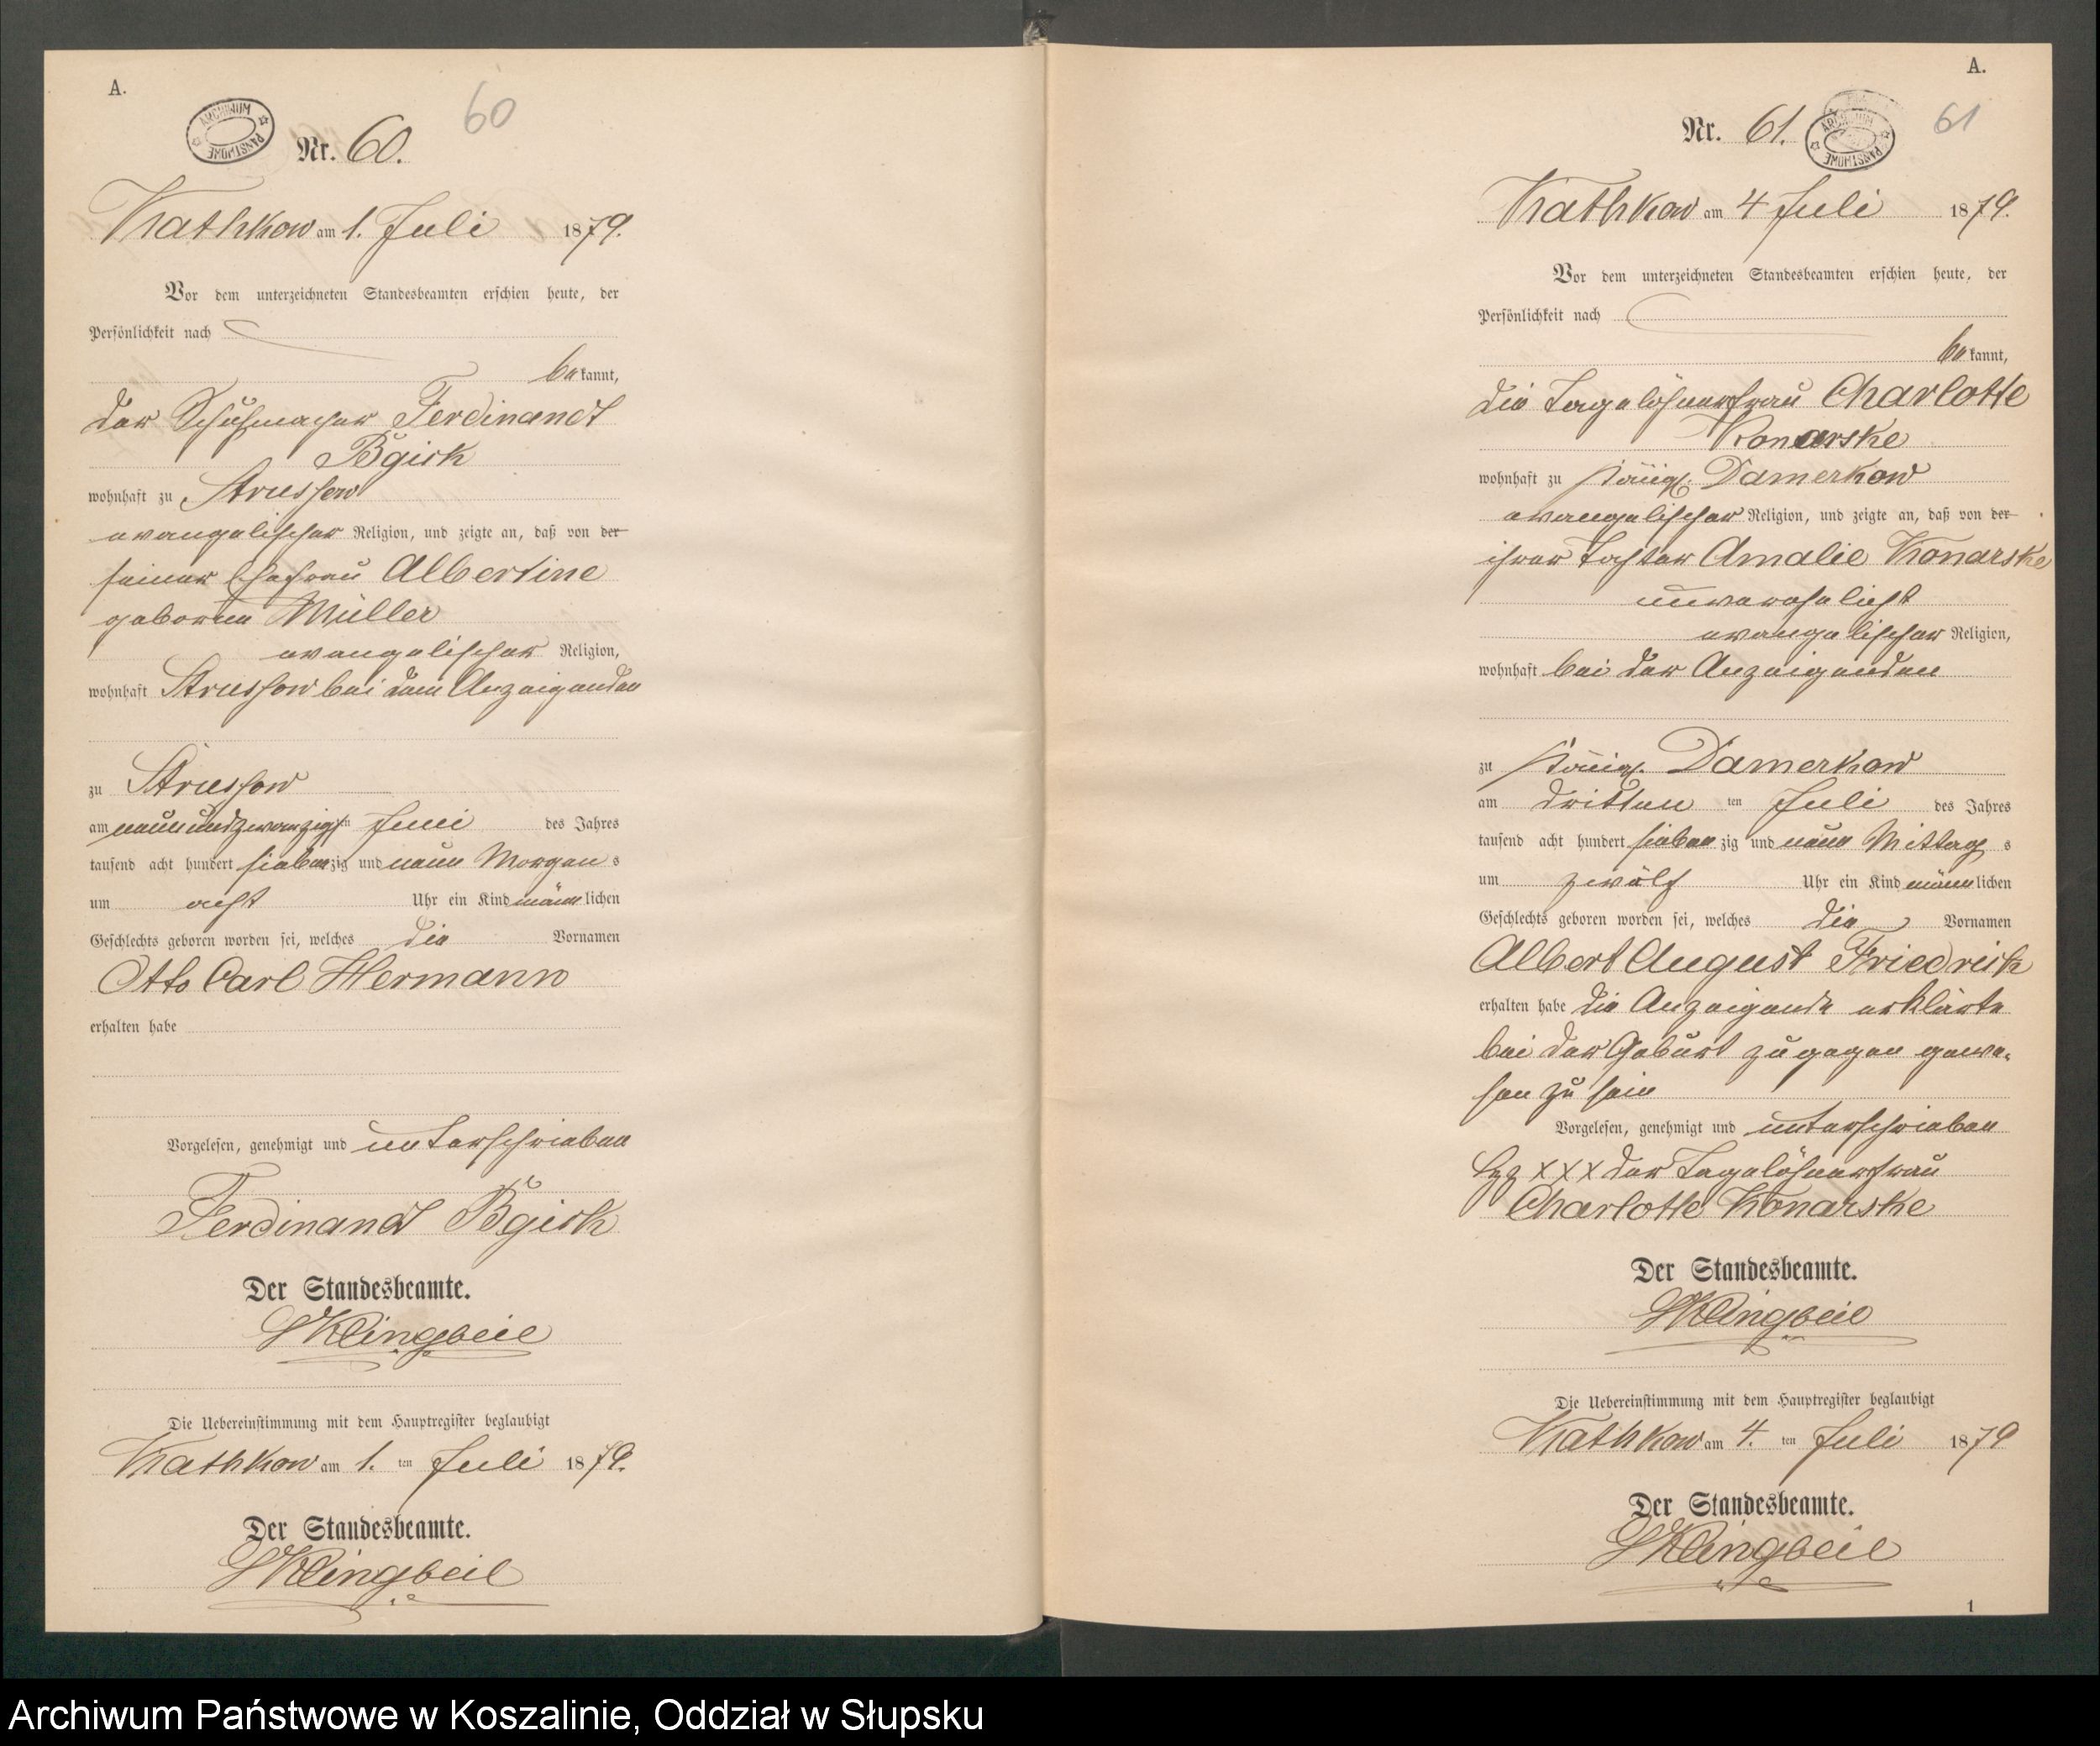 A.
ARCHIWUM PAŃSTWOWE
60
Nr. 60.
Kathkow am 1. Juli 1879.
Vor dem unterzeichneten Standesbeamten erschien heute, der
Persönlichkeit nach
bekannt,
der Schuhmacher Ferdinandt
wohnhaft zu Strussow
evangelischer Religion, und zeigte an, daß von der
seiner Ehefrau Albertine
geborene Müller
evangelischer Religion,
wohnhaft Strussow bei dem Anzeigenden
zu Strussow
am neunundzwanzigsten Juni des Jahres
tausend acht hundert siebenzig und neun Morgens
um acht Uhr ein Kind männlichen
Geschlechts geboren worden sei, welches die Vornamen
Otto Carl Hermann
erhalten habe
Vorgelesen, genehmigt und unterschrieben
Ferdinandt
Der Standesbeamte.
Klingbeil
Die Uebereinstimmung mit dem Hauptregister beglaubigt
Kathkow am 1. ten Juli 1879.
Der Standesbeamte.
Klingbeil
A.
Nr. 61.
ARCHIWUM PAŃSTWOWE
61
Kathkow am 4 Juli 1879.
Vor dem unterzeichneten Standesbeamten erschien heute, der
Persönlichkeit nach
bekannt,
die Tagelöhnerfrau Charlotte
Konarske
wohnhaft zu Königl. Damerkow
evangelischer Religion, und zeigte an, daß von der
ihrer Tochter Amalie Konarske
unverehelicht
evangelischer Religion,
wohnhaft bei der Anzeigenden
zu Königl. Damerkow
am dritten ten Juli des Jahres
tausend acht hundert siebenzig und neun Mittags
um zwölf Uhr ein Kind männlichen
Geschlechts geboren worden sei, welches die Vornamen
Albert August Friedrich
erhalten habe die Anzeigende erklärte
bei der Geburt zugegen gewe-
sen zu sein
Vorgelesen, genehmigt und unterschrieben
Hgz x x x der Tagelöhnerfrau
Charlotte Konarske
Der Standesbeamte.
Klingbeil
Die Uebereinstimmung mit dem Hauptregister beglaubigt
Kathkow am 4. ten Juli 1879
Der Standesbeamte.
Klingbeil
1
Archiwum Państwowe w Koszalinie, Oddział w Słupsku